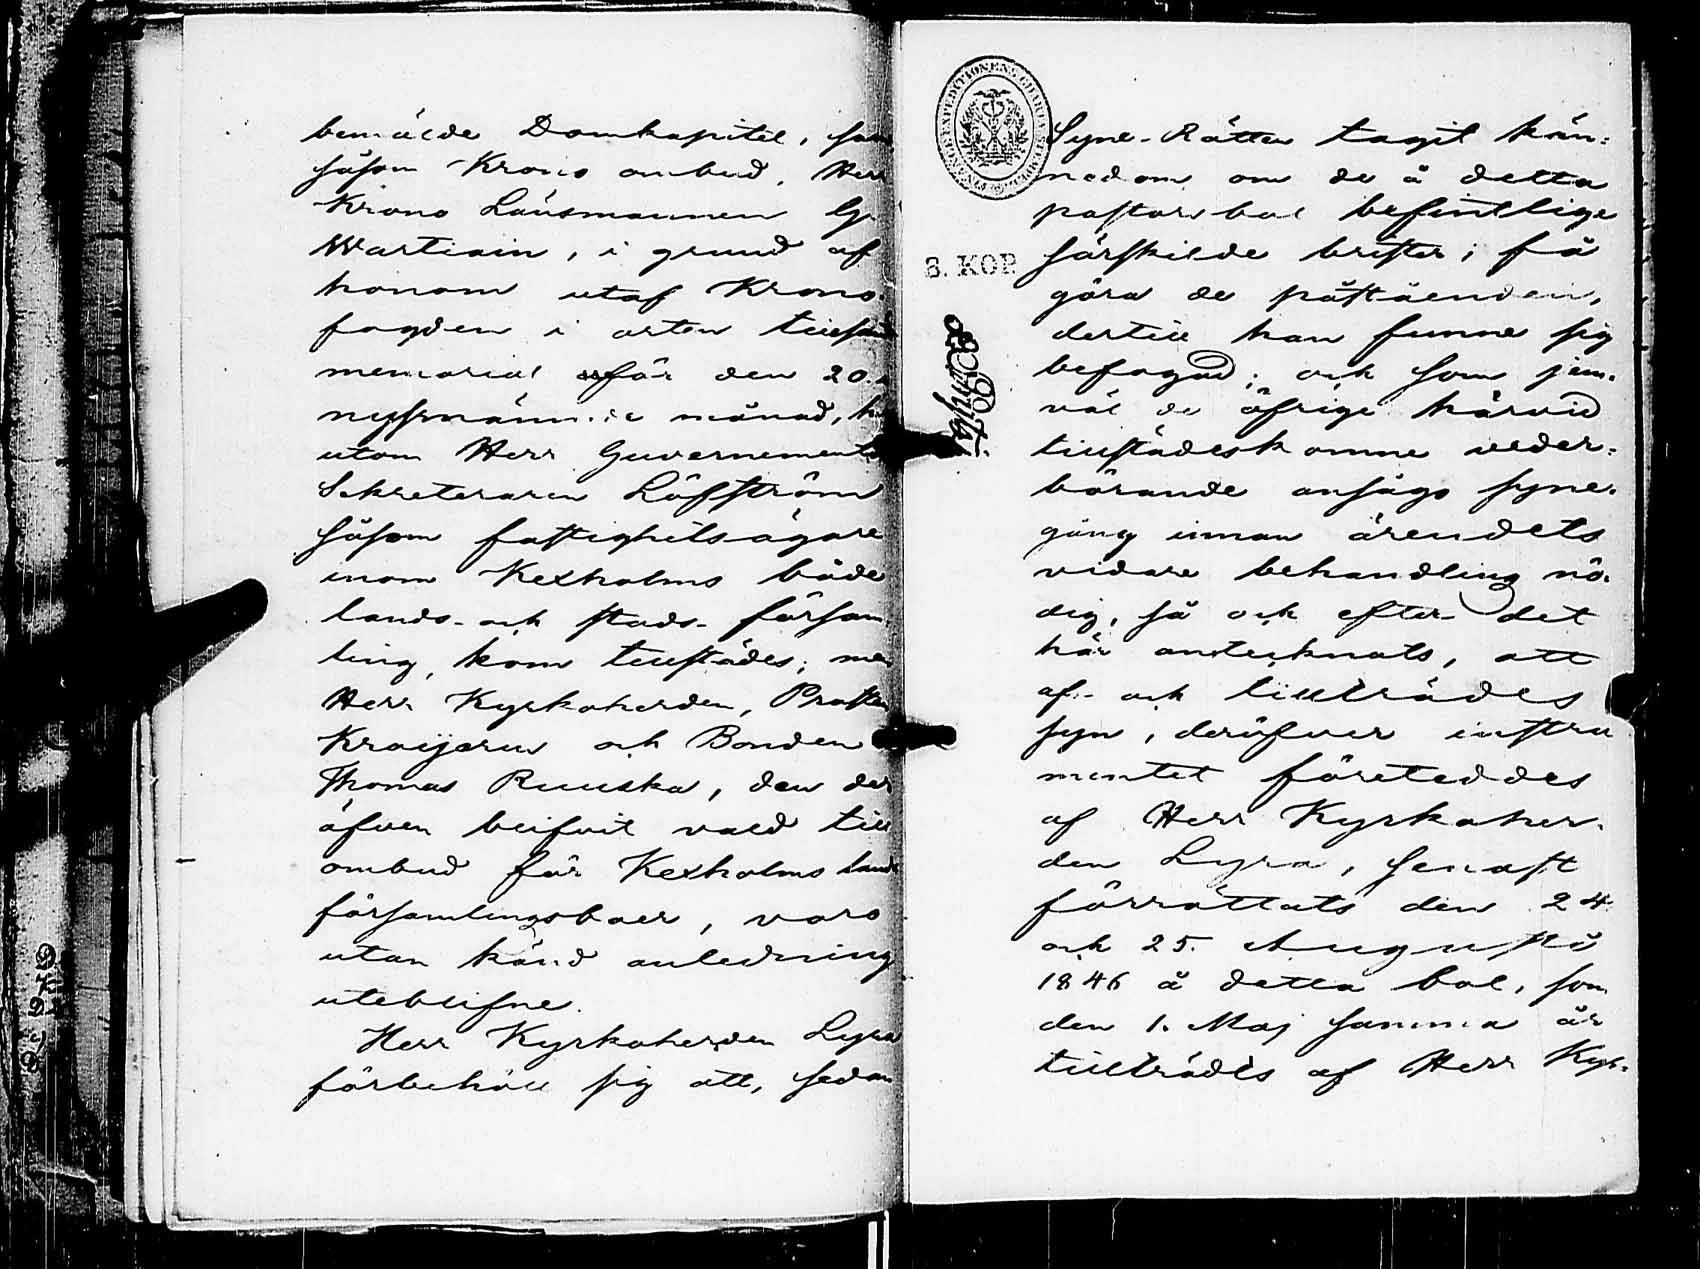 bemälde Domkapitel, som
såsom Krono ombud, Herr
Krono Länsmannen G.
Wartiain, i grund af
honom utaf Krono-
fogden i orten tillsänd
memorial för den 20.
nyssnämnde månad,
utom Herr Guvernements
Sekreteraren Löfström
såsom fastighetsägare
inom Kexholms både
lands- och stads- församling
ling, kom tillstädes; men
Herr Kyrkoherden, Prosten
Kroijerus och Bonden
Thomas Ruuska, den der
äfven blifvit vald till
ombud för Kexholms lands
församlingsboer, voro
utan känd anledning
uteblifne.
Herr Kyrkoherden Lyra
förbehöll sig att, sedan
Syne-Rätten tagit kän-
nedom om de å detta
pastorsbol befintlige
särskilde brister, få
göra de påståenden,
dertill han funne sig
befogad; och som jem-
väl de öfrige härvid
tillstädeskomne veder-
börande ansågo syne-
gång innan ärendets
vidare behandling nö-
dig, så och efter det
här antecknats, att
af- och tillträdes
syn, deröfver instru
mentet företeddes
af Herr Kyrkoher-
den Lyra, senast
förrättats den 24
och 25. Augusti
1846 å detta bol, som
den 1. Maj samma år
tillträdts af Herr Kyr-
8. KOP.